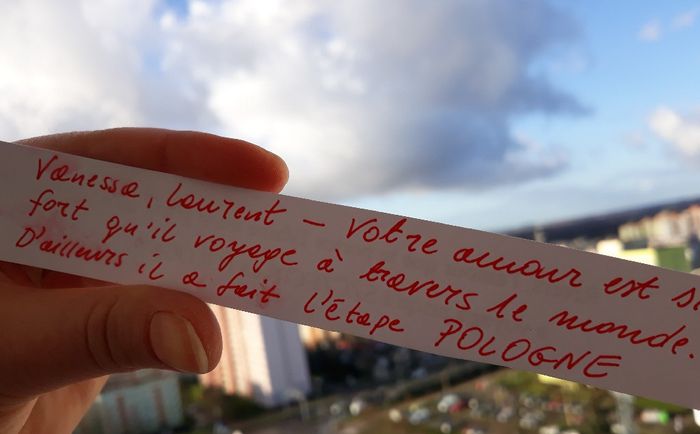 Vanessa, Laurent – Votre amour est s
fort qu'il voyage à travers le monde.
D'ailleurs il a fait l'étape POLOGNE